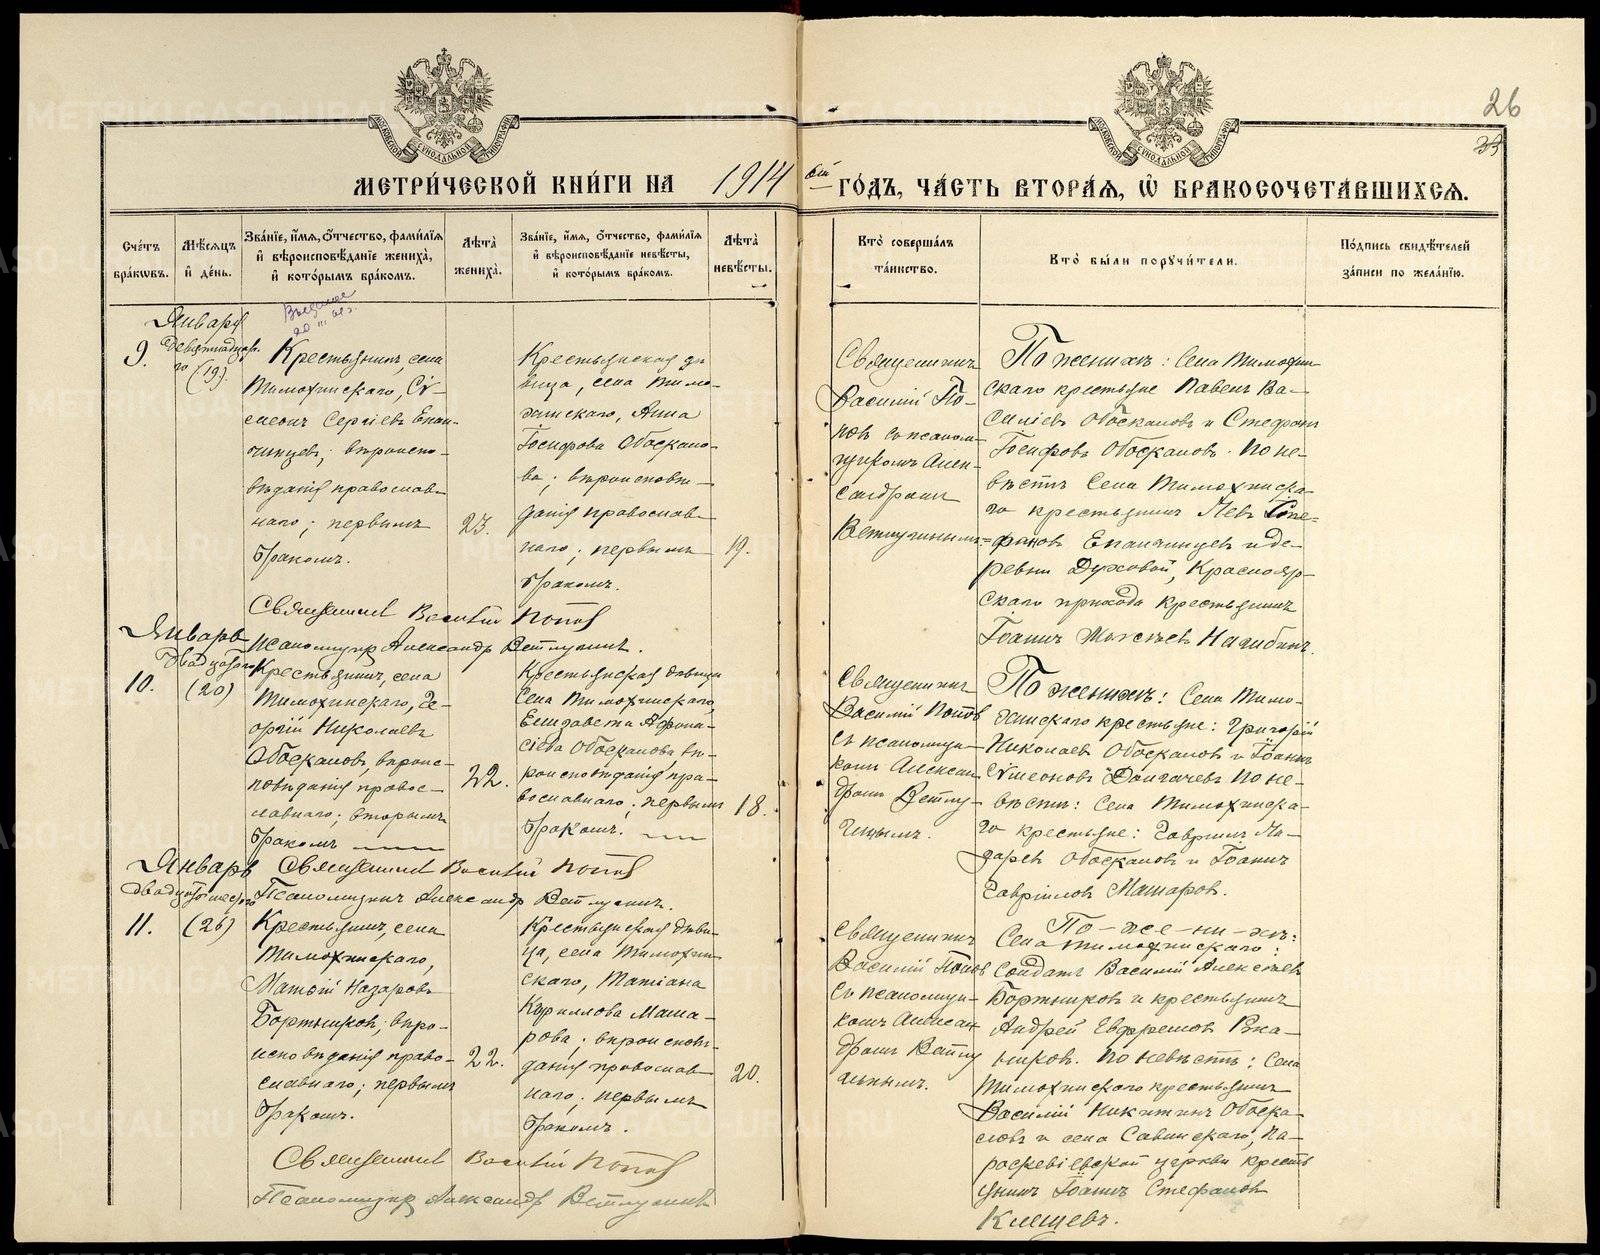 26
МЕТРИЧЕСКОЙ КНИГИ НА 1914 ый ГОДЪ, ЧАСТЬ ВТОРАЯ, Ѡ БРАКОСОЧЕТАВШИХСЯ.
Счетъ браковъ.
Мѣсяцъ и день.
Званіе, имя, отчество, фамилія и вѣроисповѣданіе жениха, и которымъ бракомъ.
Лѣта жениха.
Званіе, имя, отчество, фамилія и вѣроисповѣданіе невѣсты, и которымъ бракомъ.
Лѣта невѣсты.
Кто совершалъ таинство.
Кто были поручители.
Подпись свидѣтелей записи по желанію.
9.
Января
Девятнадцатаго
(19)
Крестьянинъ, села
Тимохинскаго, Сѵ-
меонъ Сергіевъ Епан-
чинцев; вѣроиспо-
вѣданія православ-
наго; первымъ
бракомъ.
23.
Крестьянская дѣ
вица, села Тимо-
хинскаго, Анна
Іосифова Обоскало-
ва; вѣроисповѣ-
данія православ-
наго; первымъ
бракомъ.
19.
Священникъ
Василій По-
повъ съ псалом-
щикомъ Алек-
сандромъ
Ветлугинымъ
По женихѣ: Села Тимохин
скаго крестьяне Павелъ Ва-
силіевъ Обоскаловъ и Стефанъ
Іосифовъ Обоскаловъ. По не-
вѣстѣ Села Тимохинска-
го крестьянинъ Левъ
фановъ Епанчинцевъ и де-
ревни Духовой, Краснояр-
скаго прихода крестьянинъ
Іоаннъ Нагибинъ.
Священникъ Василій Поповъ
Псаломщикъ Александр Ветлугинъ.
10.
Январь
Двадцатаго
(20)
Крестьянинъ, села
Тимохинскаго, Ге-
оргій Николаевъ
Обоскаловъ, вѣроис-
повѣданія право-
славнаго; вторымъ
бракомъ
22.
Крестьянская дѣвица
Села Тимохинскаго,
Елизавета Афана-
сіева Обоскалова, вѣ-
роисповѣданія пра-
вославнаго; первымъ
бракомъ.
18.
Священникъ
Василій Поповъ
съ псаломщи-
комъ Алексан
дромъ Ветлу-
гинымъ.
По женихѣ: Села Тимо-
хинскаго крестьяне: Григорій
Николаевъ Обоскаловъ и Іоаннъ
Сѵмеоновъ Долгачевъ По не-
вѣстѣ: Села Тимохинска-
го крестьяне: Гавріилъ На-
заревъ Обоскаловъ и Іоаннъ
Гавріиловъ Машаровъ.
Священникъ Василій Поповъ
Псаломщикъ Александр Ветлугинъ.
11.
Январь
двадцатшестаго
(26)
Крестьянинъ, села
Тимохинскаго,
Матѳій Назаровъ
Бортниковъ; вѣро-
исповѣданія право-
славнаго; первымъ
бракомъ.
22.
Крестьянская дѣви-
ца, села Тимохин-
скаго, Татіана
Кириллова Маша-
рова; вѣроисповѣ-
данія православ
наго; первымъ
бракомъ.
20.
Священникъ
Василій Поповъ
съ псаломщи-
комъ Алексан
дромъ Ветлу
гинымъ.
По-же-ни-хѣ:
Села Тимохинскаго:
солдатъ Василій Алексѣевъ
Бортниковъ и крестьянинъ
Андрей Евфремовъ
никовъ. По невѣстѣ: Села
Тимохинскаго крестьянинъ
Василій Никитинъ Обоска-
ловъ и села Савинскаго, Па-
раскевіевской церкви кресть
янинъ Іоаннъ Стефановъ
Клещевъ.
Священникъ Василій Поповъ
Псаломщикъ Александръ Ветлугинъ
METRIKI.GASO-URAL.RU